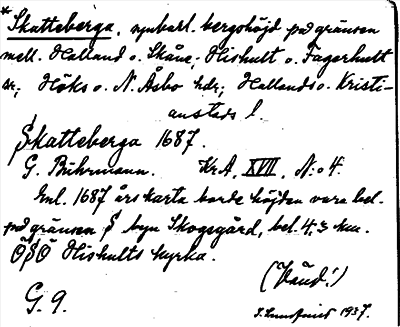 * Skatteberga, uynbarl. bergshöjd på gränsen
mell. Halland o. Skåne, Hishult o. Fagerhult
sr; Höks o. N. Åsbo hdr; Hallands o. Kristi-
anstads l.
Skatteberga 1687.
G. Buhrmann. Kr.A. XVII, N:o 4.
Enl. 1687 års karta borde höjden vara bel.
på gränsen S byn Skogsgård, bel. 4,3 km.
ÖSÖ Hishults kyrka.
G. 9.
1937.